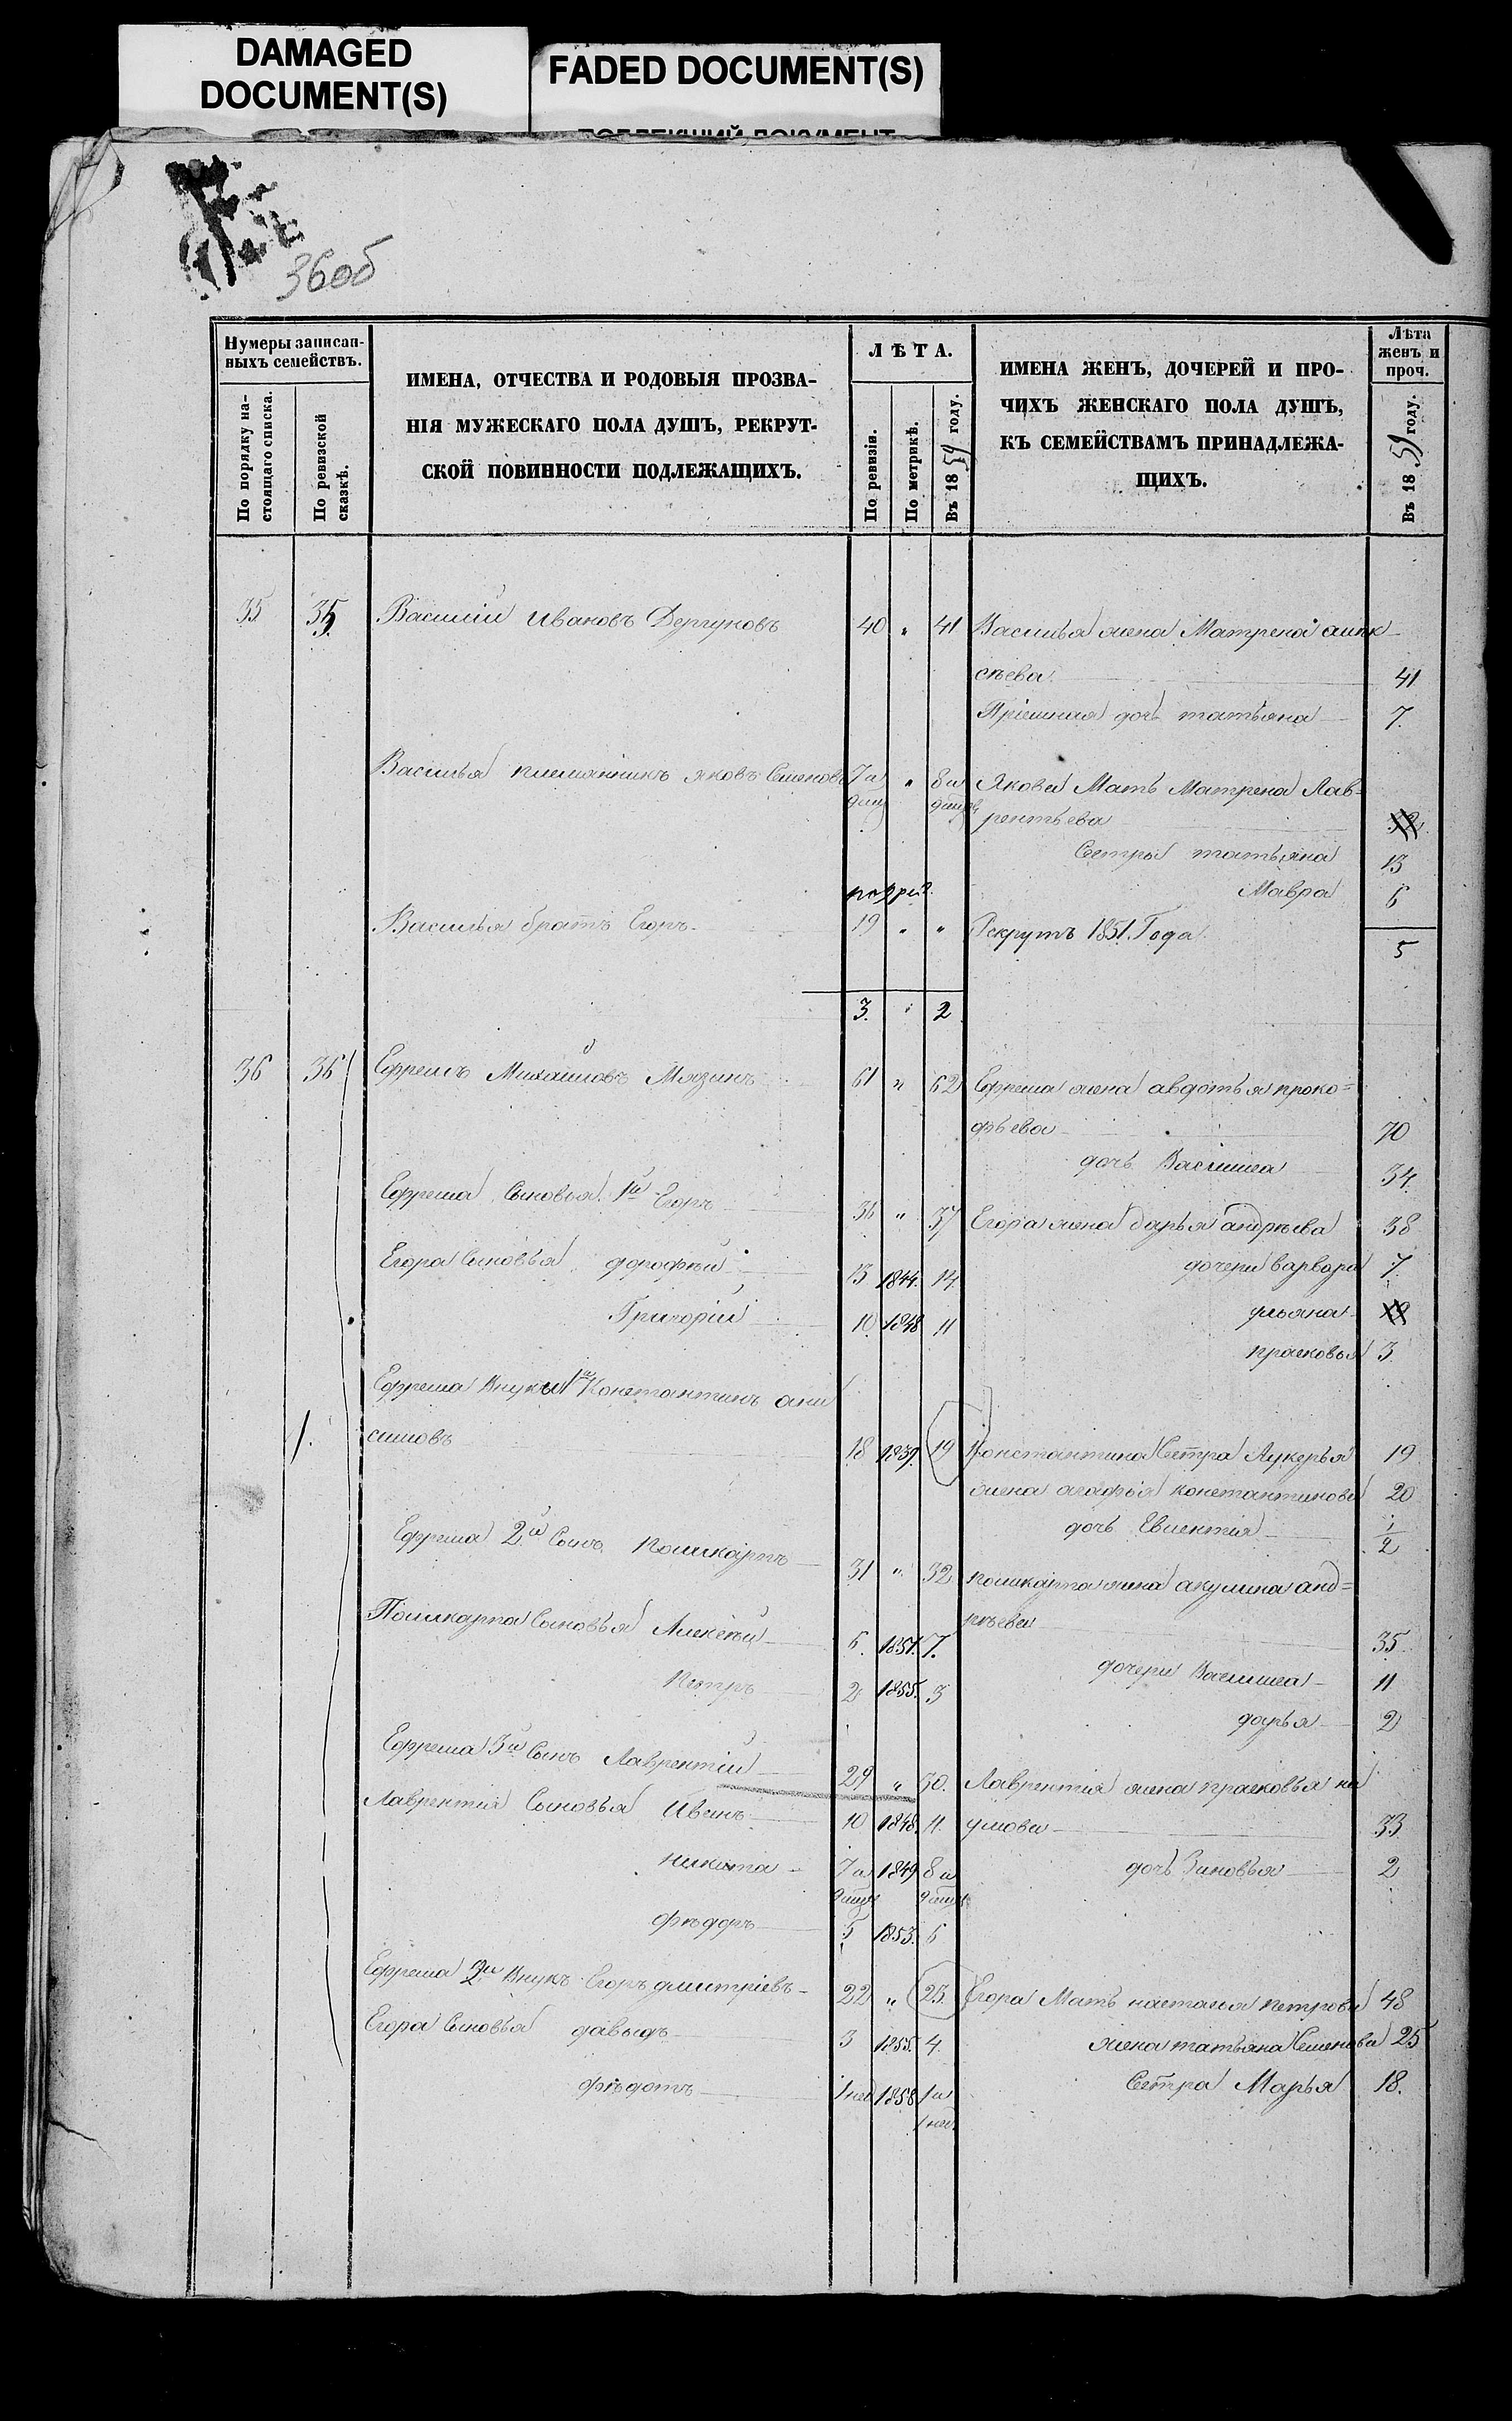 DAMAGED
DOCUMENT(S)
FADED DOCUMENT(S)
36об
Нумеры записан-
ныхъ семействъ.
По порядку на-
стоящаго списка.
По ревизской
сказкѣ.
ИМЕНА, ОТЧЕСТВА И РОДОВЫЯ ПРОЗВА-
НІЯ МУЖЕСКАГО ПОЛА ДУШЪ, РЕКРУТ-
СКОЙ ПОВИННОСТИ ПОДЛЕЖАЩИХЪ.
ЛѢТА.
По ревизіи.
По метрикѣ.
Въ 1859 году.
ИМЕНА ЖЕНЪ, ДОЧЕРЕЙ И ПРО-
ЧИХЪ ЖЕНСКАГО ПОЛА ДУШЪ,
КЪ СЕМЕЙСТВАМЪ ПРИНАДЛЕЖА-
ЩИХЪ.
Лѣта
женъ и
проч.
Въ 1859 году.
35 35 Василій Ивановъ Дергуновъ 40 " 41 Василья жена Матрена алек-
сѣева 41
Пріемная дочь татьяна 7.
Василья племянникъ яковъ Семеновъ 7 и " 8 и Якова Мать Матрена Лав-
рентьева
Сестры татьяна 13
Мавра 6
Василья братъ Егоръ 19 " " Рекрутъ 1851. Года.
5
3. " 2
36 36 Ефремъ Михайловъ Мязинъ 61 " 62 Ефрема жена авдотья проко=
фьева 70
дочь Василиса 34.
Ефрема Сыновья 1й Егоръ 36 " 37 Егора жена дарья андрѣева 38
Егора Сыновья дорофѣй 13 1844. 14. дочери варвара 7.
Григорій 10 1848 11 ульяна
прасковья 3.
Ефрема Внуки 1й Константинъ ани
симовъ 18 1839. 19 Константина Сестра Лукерья 19
1.
жена агафья константинова 20
дочь Евлентія 1/2
Ефрема 2й Сынъ поликарпъ 31 " 32 поликарпа жена акулина анд=
рѣева 35
Поликарпа Сыновья Алексѣй 6. 1851. 7.
дочери Василиса 11
Петръ 2 1855. 3
дарья 2
Ефрема 3й Сынъ Лаврентій 29 " 30. Лаврентія жена прасковья на
Лаврентія Сыновья Иванъ 10 1848. 11. умова 33
никита 7 и 1849 8 и дочь Зиновья 2
фѣдоръ 5 1853. 6
Ефрема 2й Внукъ Егоръ дмитріевъ 22 " 23. Егора Мать настасья петрова 48
Егора Сыновья давыдъ 3 1855. 4. жена татьяна Семенова 25
фѣдотъ 1 нед 1858 1 и Сестра Марья 18.
1 нед.